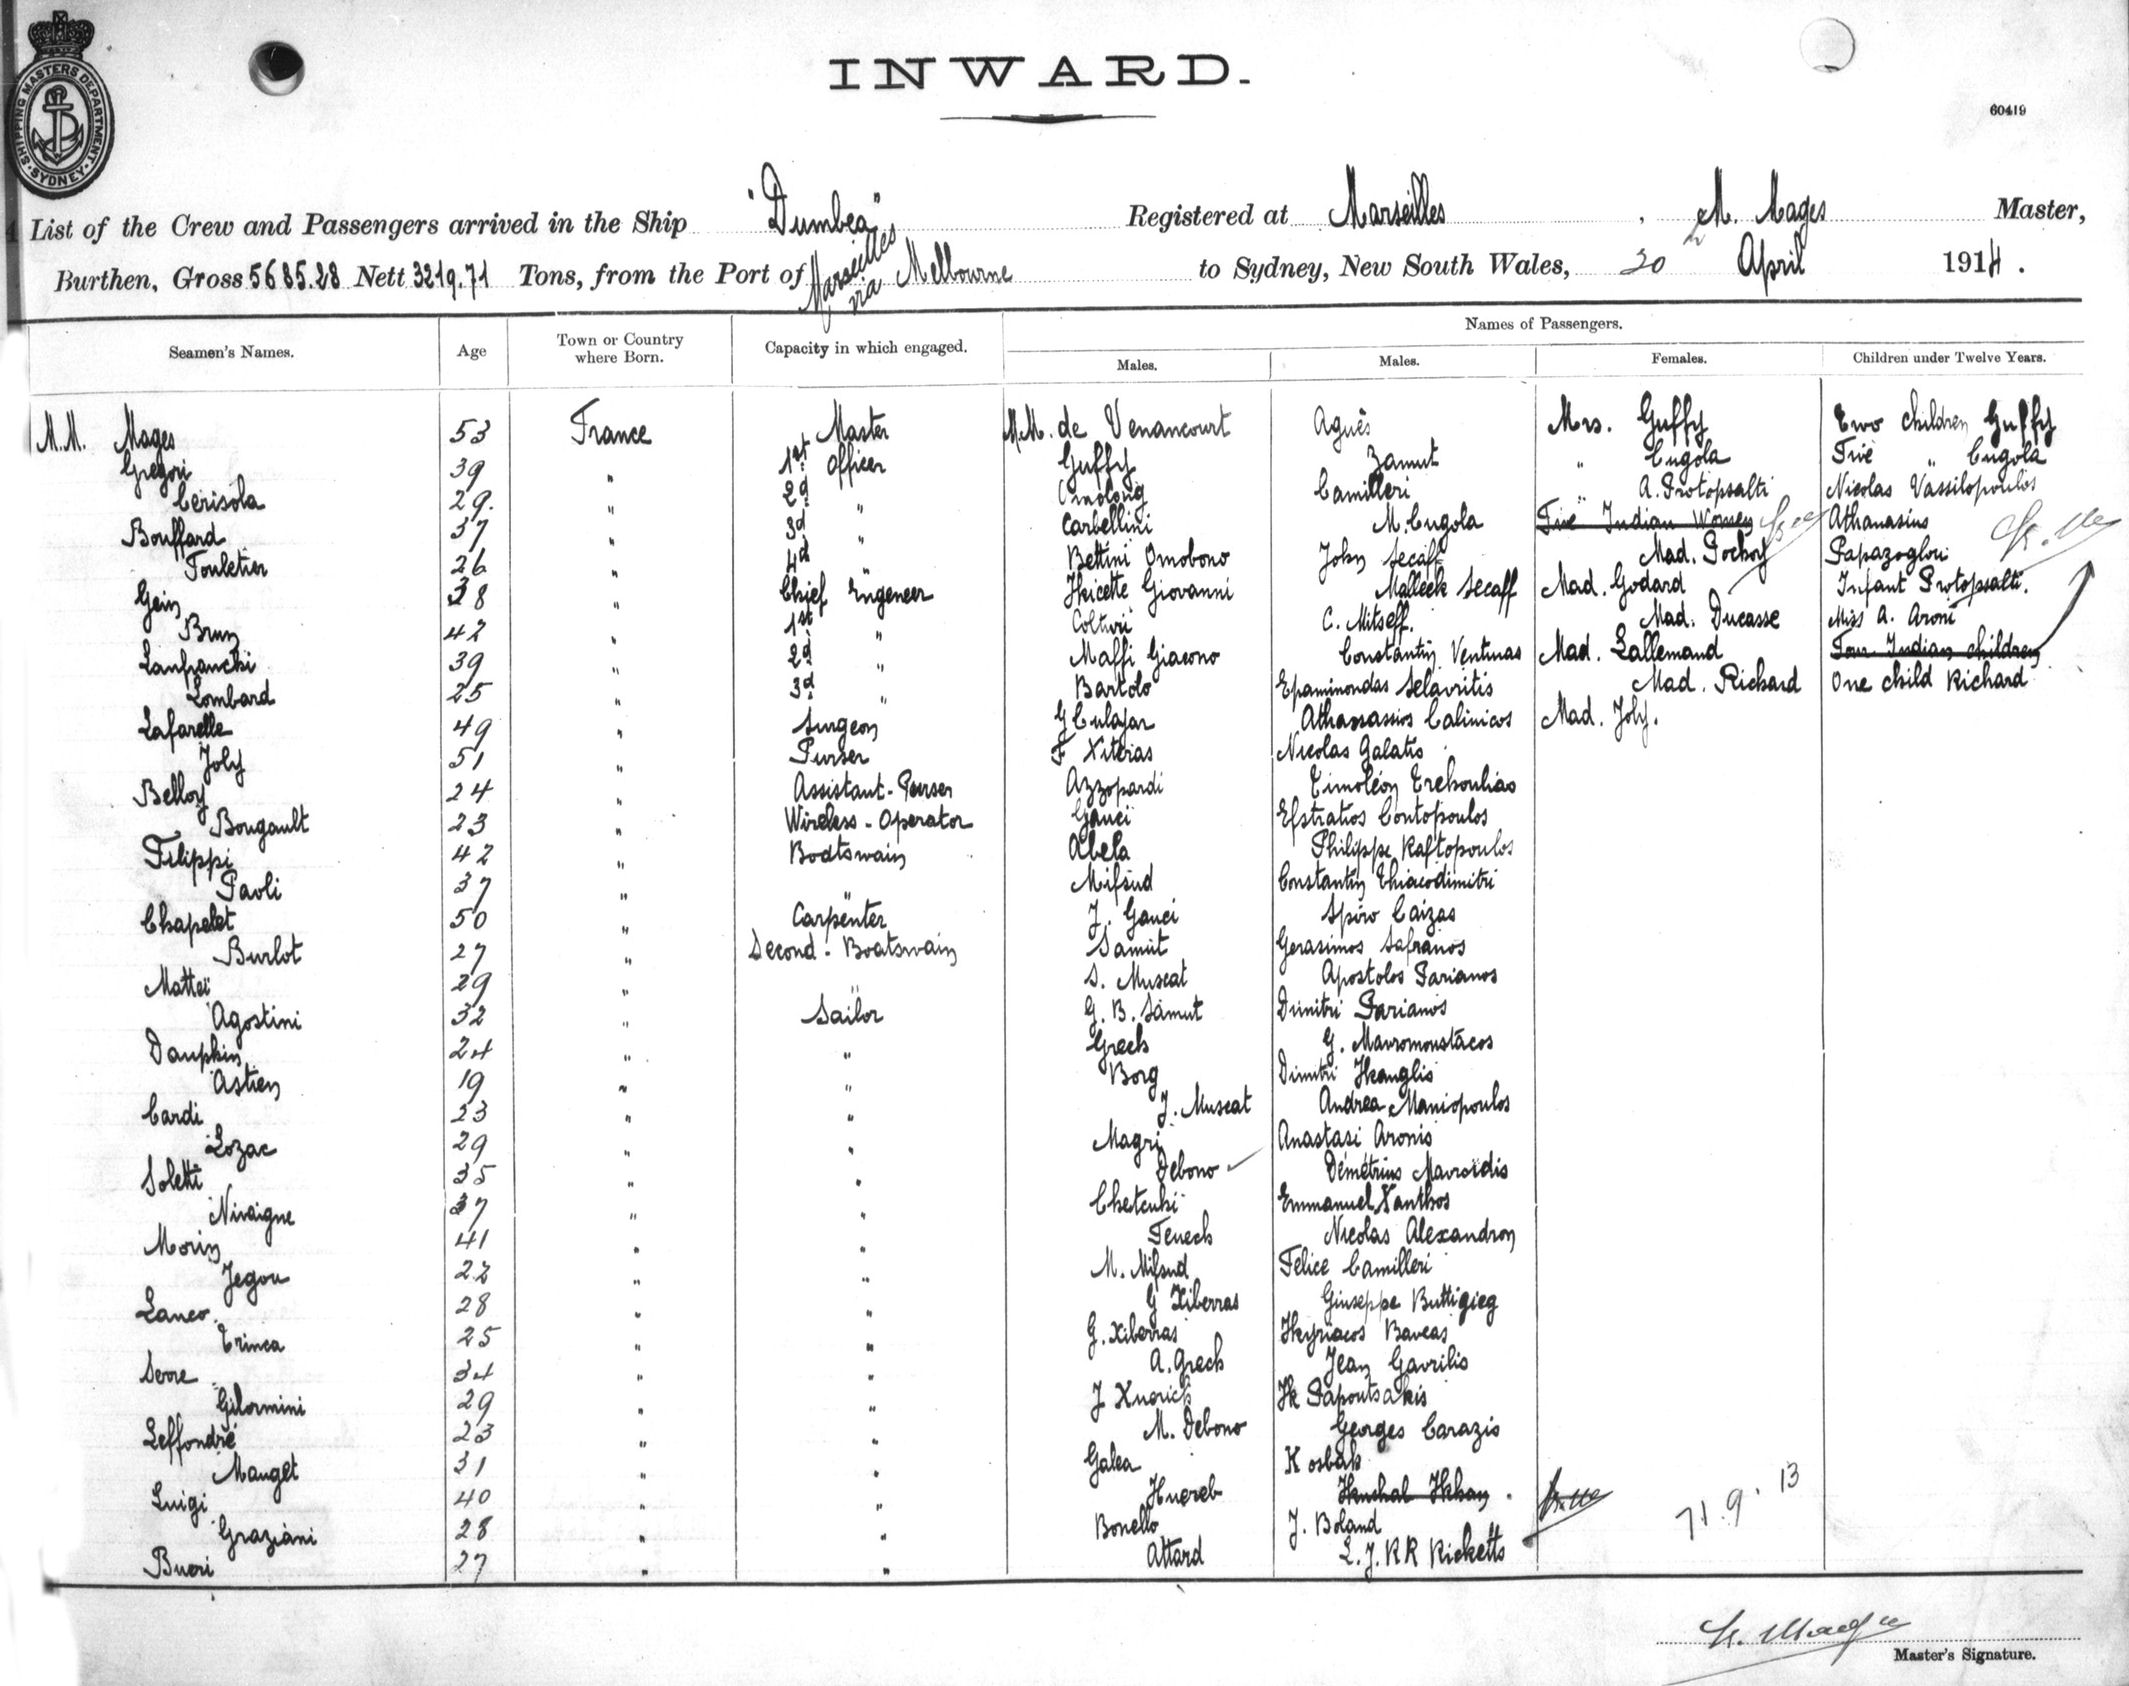 SHIPPING MASTERS DEPARTMENT
SYDNEY
INWARD.
60419
List of the Crew and Passengers arrived in the Ship "Dumbea" Registered at Marseilles, M. Mages Master,
Burthen, Gross 5685.28 Nett 3219.71 Tons, from the Port of Marseilles via Melbourne to Sydney, New South Wales, 30 April 1914.
Seamen's Names. Age Town or Country where Born. Capacity in which engaged. Names of Passengers.
Males. Males. Females. Children under Twelve Years.
M.M. Mages 53 France Master M.M. de Venancourt Agnès Mrs. Guffy Two children Guffy
Gregori 39 " 1st Officer Guffy Zamut " Cugola Five " Cugola
Cerisola 29. " 2d " Omolong Camilleri A. Protopsalti Nicolas Vassilopoulos
Bouffard 37 " 3d " Carbellini M. Cugola Five Indian Women Athanasius
Touletier 26 " 4d " Bettini Omobono John Secaff Mad. Pochoy Papazoglou
Gein 38 " Chief Engeneer Hkicette Giovanni Malleck Secaff Mad. Godard Infant Protopsalti.
Brun 42 " 1st " Colturi C. Mitseff. Mad. Ducasse Miss A. Aroni
Lanfranchi 39 " 2d " Maffi Giacono Constantin Ventinas Mad. Lallemand Four Indian children
Lombard 25 " 3d " Bartolo Epaminondas Selavritis Mad. Richard One child Richard
Lafarelle 49 " Surgeon G Culajar Athanassios Calinicos Mad. Joly.
Joly 51 " Purser F Xiteras Nicolas Galatis
Belloy 24 " Assistant-Purser Azzopardi Timoléon Trehoulias
Bougault 23 " Wireless-Operator Gauci Efstratios Contopoulos
Filippi 42 " Bodtswain Abela Philippe Raftopoulos
Paoli 37 " " Mifsud Constantin Thiacodimitri
Chapelet 50 " Carpenter J. Gauci Spiro Caizas
Burlot 27 " Second-Boatswain Samut Gerasimos Safranos
Mattei 29 " " S. Muscat Apostolos Parianos
Agostini 32 " Sailor G. B. Samut Dimitri Parianos
Dauphin 24 " " Grech G. Mavromoustacos
Astien 19 " " Borg Dimitri Hkanglis
Cardi 23 " " J. Muscat Andrea Maniopoulos
Lozac 29 " " Magri Anastasi Aronis
Soletti 35 " " Debono Démétrius Mavroïdis
Nivaigne 37 " " Chetcuhi Emmanuel Xanthos
Morin 41 " " Fenech Nicolas Alexandron
Jegou 22 " " M. Mifsud Felice Camilleri
Lanco. 28 " " G Xiberras Giuseppe Buttigieg
Trinca 25 " " G. Xiberras Hkyriacos Baveas
Serre 34 " " A. Grech Jean Gavrilis
Gilormini 29 " " J Xuerich Hk Papoutsakis
Leffondré 23 " " M. Debono Georges Carazis
Manget 31 " " Galea Kosbah
Luigi 40 " " Huereb Hkuchal Hkhan.
Graziani 28 " " Bonello J. Boland 71.9.13
Bueri 27 " " Attard L.J.RR Ricketts
Master's Signature.